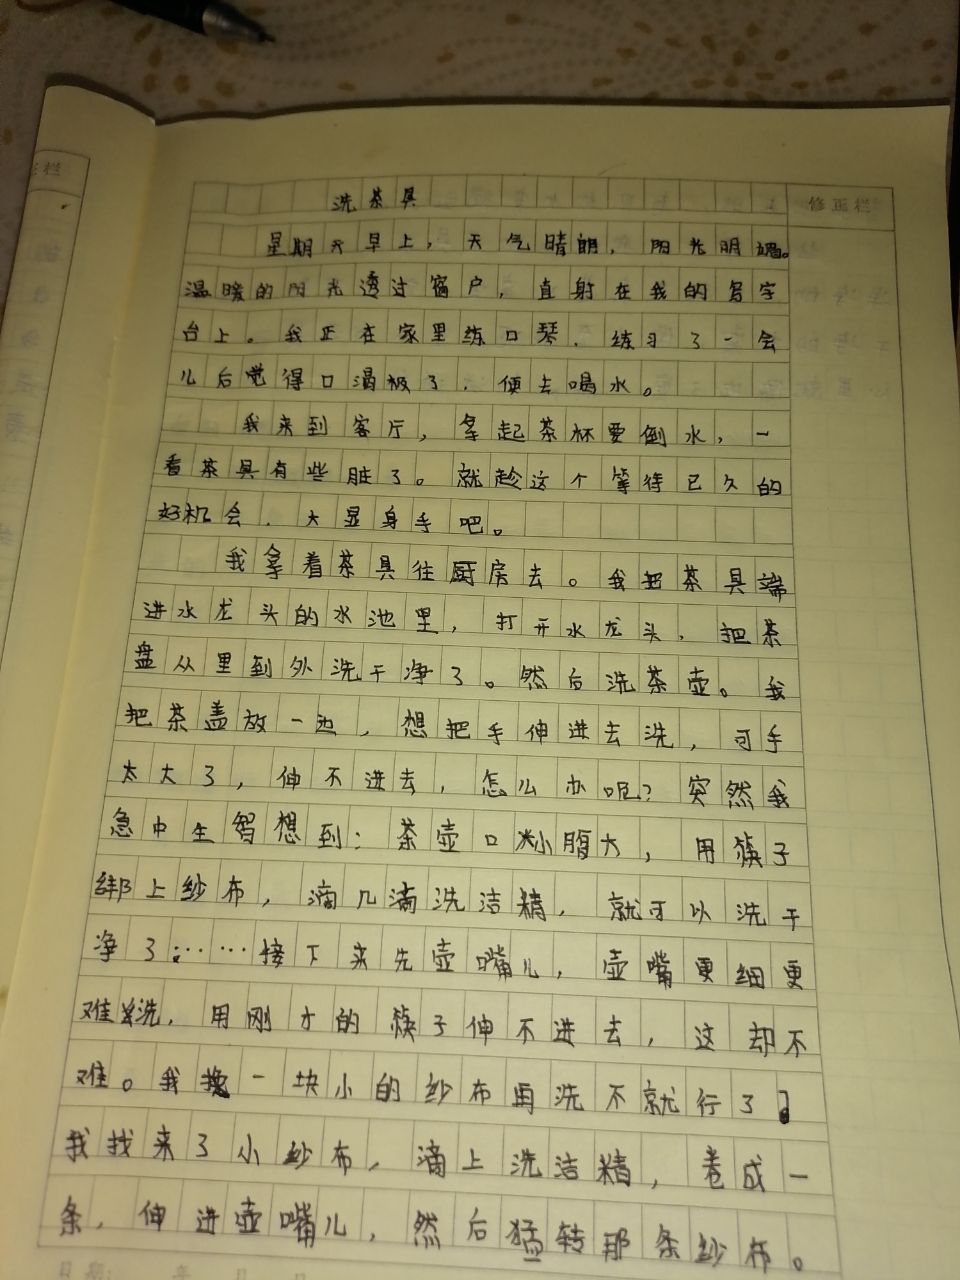 正栏
修正栏
洗茶具
星期天早上，天气晴朗，阳光明媚。
温暖的阳光透过窗户，直射在我的写字
台上。我正在家里练口琴，练习了一会
儿后觉得口渴极了，便去喝水。
我来到客厅，拿起茶杯要倒水，一
看茶具有些脏了。就趁这个等待已久的
好机会，大显身手吧。
我拿着茶具往厨房去。我把茶具端
进水龙头的水池里，打开水龙头，把茶
盘从里到外洗干净了。然后洗茶壶。我
把茶盖放一边，想把手伸进去洗，可手
太大了，伸不进去，怎么办呢？突然我
急中生智想到：茶壶口小腹大，用筷子
绑上纱布，滴几滴洗洁精，就可以洗干
净了……接下来先壶嘴儿，壶嘴更细更
难洗，用刚才的筷子伸不进去，这却不
难。我换一块小的纱布再洗不就行了？
我找来了小纱布，滴上洗洁精，卷成一
条，伸进壶嘴儿，然后猛转那条纱布。